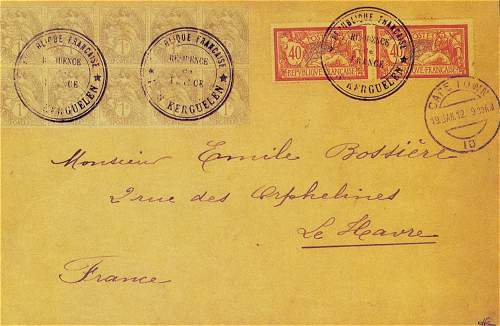 RÉPUBLIQUE FRANÇAISE
RÉSIDENCE
DE
FRANCE
KERGUELEN
RÉPUBLIQUE FRANÇAISE
RÉSIDENCE
DE
FRANCE
KERGUELEN
RÉPUBLIQUE FRANÇAISE
RÉSIDENCE
DE
FRANCE
KERGUELEN
40
POSTES
REPUBLIQUE FRANÇAISE
40
CAPE TOWN
19 JAN 12
10
Monsieur Emile Bossière
2 rue des Orphelines
Le Havre
France